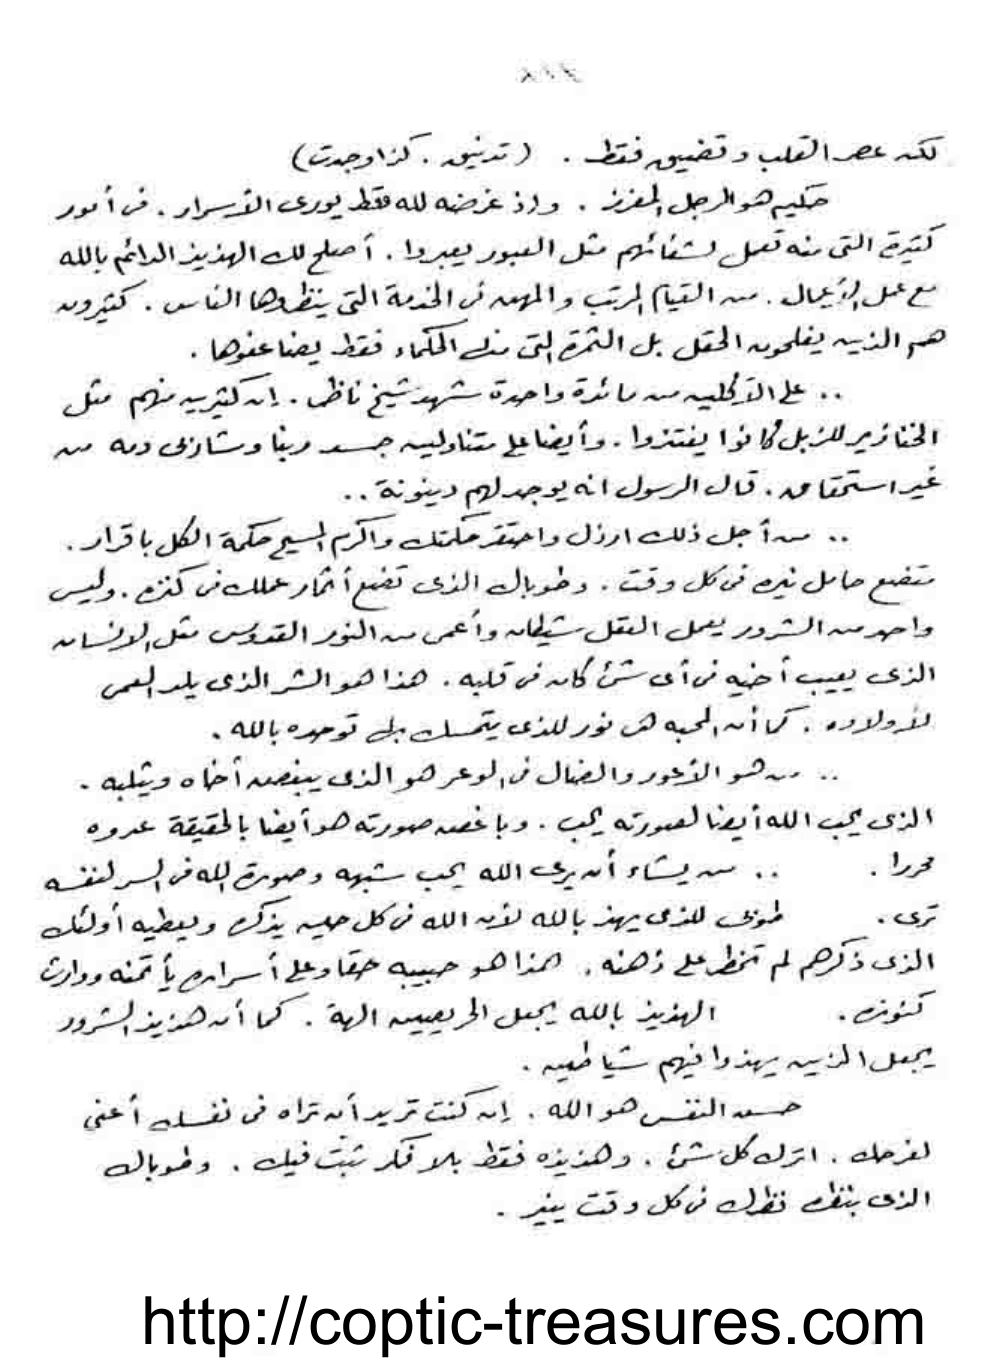 لكن عصر القلب وتضييق فقط . (تدنيق . كذا وجدت)
حكيم هو الرجل المفرز . واذ غرضه لله فقط يورى الأسرار . فى أمور
كثيرة التى منه تعمل لشفائهم مثل العبور يعبروا . أصلح لك الهذيذ الدائم بالله
مع عمل الأعمال . من القيام المرتب والمهن فى الخدمة التى ينظروها الناس . كثيرون
هم الذين يفلحون الحقل بل الثمرة التى منه الحكماء فقط يضاعفوها .
.. على الآكلين من مائدة واحدة شهد شيخ ناظر . ان كثيرين منهم مثل
الخنازير للزبل كانوا يفتذوا . وأيضا على متناولين جسد ربنا وشاربى دمه من
غير استحقاق . قال الرسول انه يوجد لهم دينونة ..
.. من أجل ذلك ارذل واحتقر حكمتك واكرم المسيح حكمة الكل باقرار .
متضع حامل نيره فى كل وقت . وطوباك الذى تضع أثمار عملك فى كنزه . وليس
واحد من الشرور يعمل العقل شيطان وأعمى من النور القدوس مثل الانسان
الذى يعيب أخيه فى أى شئ كان فى قلبه . هذا هو الشر الذى يلد العمى
لأولاده . كما أن المحبه هى نور للذى يتمسك بك توحده بالله .
.. من هو الأعور والضال فى الوعر هو الذى يبغض أخاه ويثلبه .
الذى يحب الله أيضا لصورته يحب . وباغض صورته هو أيضا بالحقيقة عدوه
محررا . .. من يشاء أن يرى الله يحب شبهه وصورة الله فى السر لنفسه
ترى . طوبى للذى يهذ بالله لأن الله فى كل حين يذكره ويعطيه أولئك
الذى ذكرهم لم تخطر على ذهنه . هذا هو حبيبه حقا وعلى أسراره يأتمنه ووارث
كنوزه . الهذيذ بالله يجعل الحريصين الهة . كما أن هذيذ الشرور
يجعل الذين يهذوا فيهم شياطين .
حسن النفس هو الله . ان كنت تريد أن تراه فى نفسك أعنى
لفرحك . اترك كل شئ . وهذيذه فقط بلا فكر ثبت فيك . وطوباك
الذى بنظره نظرك فى كل وقت ينير .
http://coptic-treasures.com